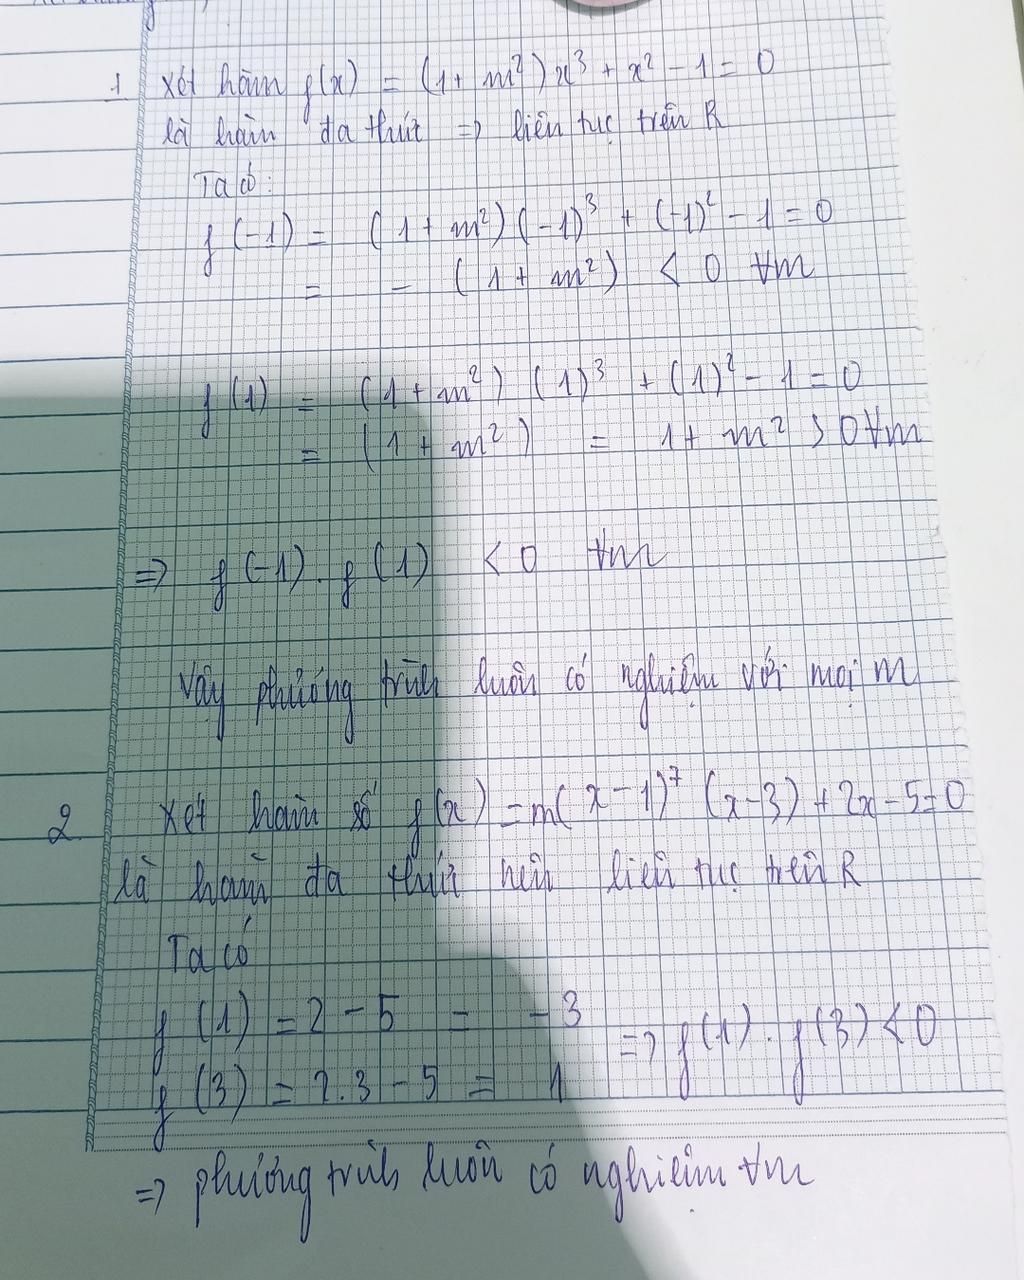 1 Xét hàm f(x) = (1 + m²) x³ + x² - 1 = 0
là hàm đa thức => liên tục trên R
Ta có:
f(-1) = (1 + m²) (-1)³ + (-1)² - 1 = 0
= - (1 + m²) < 0 ∀m
f(1) = (1 + m²) (1)³ + (1)² - 1 = 0
= (1 + m²) = 1 + m² > 0 ∀m
=> f(-1) . f(1) < 0 ∀m
Vậy phương trình luôn có nghiệm với mọi m
2 Xét hàm số f(x) = m(x - 1)⁷ (x - 3) + 2x - 5 = 0
là hàm đa thức nên liên tục trên R
Ta có
f(1) = 2 - 5 = - 3 => f(1) . f(3) < 0
f(3) = 2.3 - 5 = 1
=> phương trình luôn có nghiệm ∀m